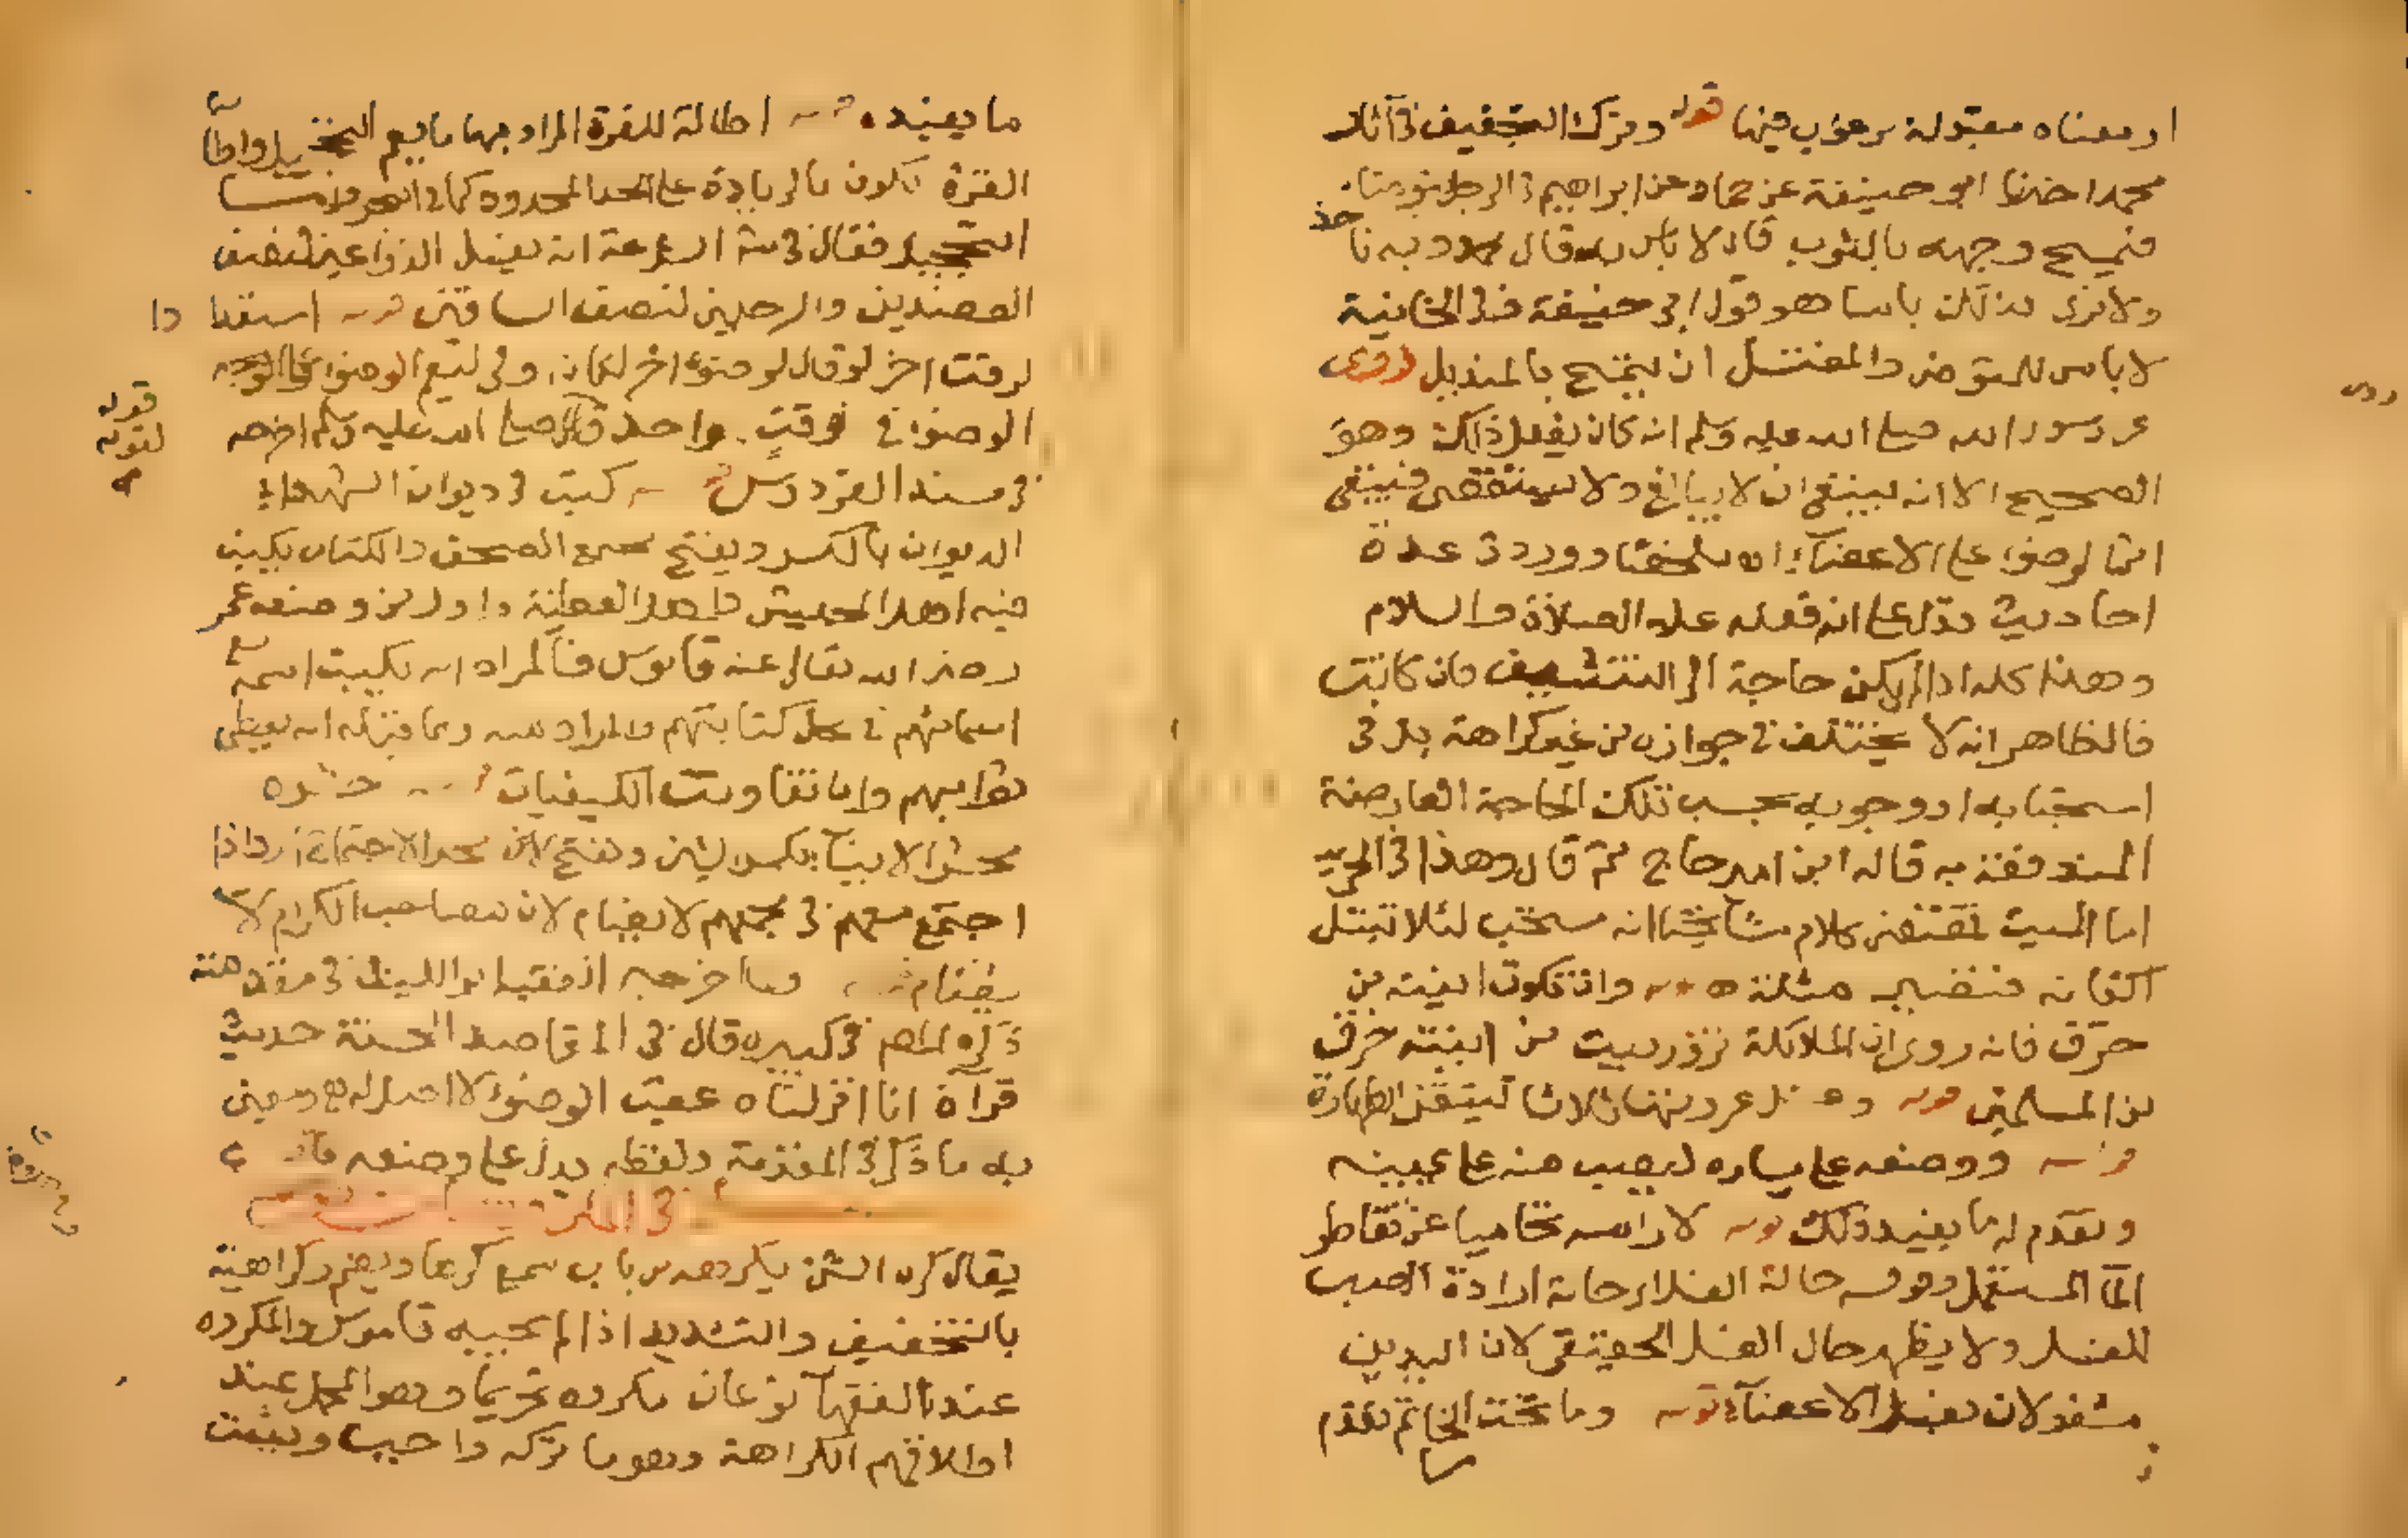 او معناه مقبولة مرغوب فيها قوله وترك التجفيف في آثار
محمد اخبرنا ابو حنيفة عن حماد عن ابراهيم في الرجل يتوضأ
فيمسح وجهه بالثوب قال لا باس به قال محمد وبه ناخذ
ولا نرى بذلك باسا هو قول ابي حنيفة في الخانية
لا باس للمتوضئ والمغتسل ان يتمسح بالمنديل روى
عن رسول الله صلى الله عليه وسلم انه كان يفعل ذلك وهو
الصحيح الا انه ينبغي ان لا يبالغ ولا يستقصى فيبقى
اثر الوضوء على الاعضاء اه ملخصا ووردت عدة
احاديث تدل على انه فعله عليه الصلاة والسلام
وهذا كله اذا لم يكن حاجة الى التنشيف فان كانت
فالظاهر انه لا يختلف في جوازه من غير كراهة بل في
استحبابه او وجوبه بحسب تلك الحاجة العارضة
قاله ابن امير حاج ثم قال وهذا في الحي
اما الميت فمقتضى كلام مشايخنا انه مستحب لئلا تبتل
اكفانه فتصير مثلة اه وان تكون انيته من
خزف فانه روى ان الملائكة تزور بيت من انيته خزف
من المسلمين قوله ثلاثا ليتقن الطهارة
قوله ووضعه على يساره ليصب منه على يمينه
وتقدم له ما يفيد ذلك قوله لا راسه تحاميا عن تقاطر
الماء المستعمل وقوله حالة الغسل اي حالة ارادة الصب
للغسل ولا يظهر حال الغسل الحقيقي لان اليدين
مشغولان بغسل الاعضاء قوله وما تحت الخاتم تقدم
ما يفيده قوله اطالة للغرة المراد بها ما يعم التحجيل واطالة
الغرة تكون بالزيادة على الحد المحدود كما في البحر واما
التحجيل فقال في شرح الشرعة انه يغسل الذراعين لنصف
العضدين والرجلين لنصف الساقين قوله استعدادا
لوقت اخر لو قال لوضوء اخر لكان
الوضوء في وقت واحد قوله لقوله صلى الله عليه وسلم اخرجه
في مسند الفردوس قوله كتب في ديوان الشهداء
الديوان بالكسر ويفتح مجمع الصحف والكتاب يكتب
فيه اهل الجيش واهل العطية واول من وضعه عمر
رضي الله تعالى عنه قاموس فالمراد انه يكتب اسمه مع
اسمائهم في محل كتابتهم والمراد منه ومما قبله انه يعطى
ثوابهم وان تفاوتت الكيفيات قوله حشره
محشر الانبياء بكسر الشين وتفتح لانه محل الاجتماع واذا
اجتمع معهم في محلهم لا يضام لان مصاحب الكرام لا
يضام قوله لما اخرجه الفقيه ابو الليث في مقدمته
ذكره المص في كبيره قال في المقاصد الحسنة حديث
قراءة انا انزلناه عقب الوضوء لا اصل له
ما ذكر في المقدمة ولفظه يدل على وضعه
يقال كره الشئ يكرهه من باب سمع كرها ويضم وكراهية
بالتخفيف والتشديد اذا لم يحببه قاموس والمكروه
عند الفقهاء نوعان مكروه تحريما وهو المحمل عند
اطلاقهم الكراهة وهو ما تركه واجب ويثبت